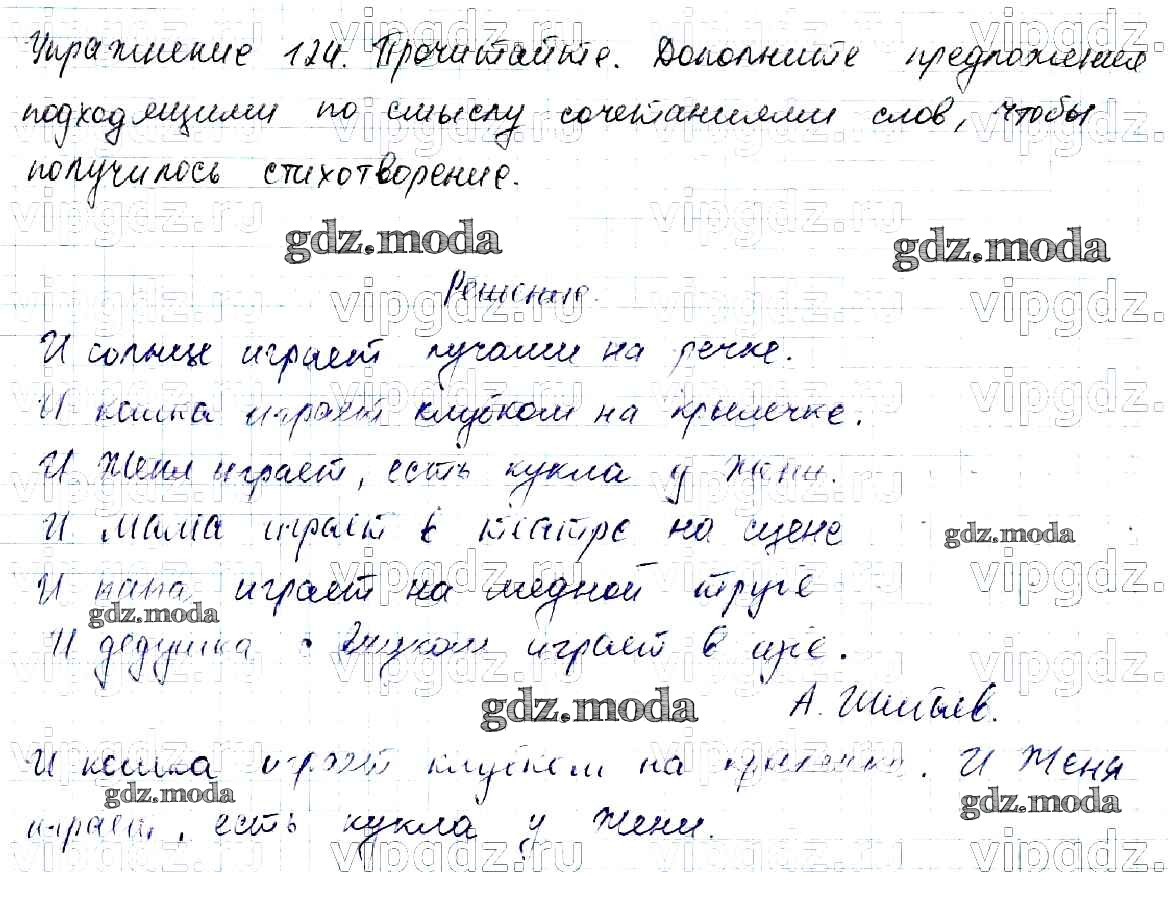 Упражнение 124. Прочитайте. Дополните предложения
подходящими по смыслу сочетаниями слов, чтобы
получилось стихотворение.
gdz.moda
gdz.moda
Решение.
И солнце играет лучами на речке.
И кошка играет клубком на крылечке.
И Женя играет, есть кукла у Жени.
И мама играет в театре на сцене
gdz.moda
И папа играет на медной трубе
gdz.moda
И дедушка с внуком играет в избе.
gdz.moda
А. Шибаев.
И кошка играет клубком на крылечке. И Женя
gdz.moda
gdz.moda
играет, есть кукла у Жени.